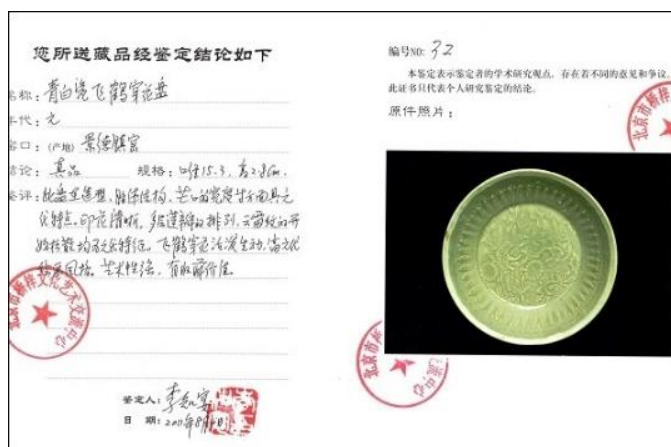 您所送藏品经鉴定结论如下
名称：青白瓷飞鹤穿花盘
年代：元
窑口：(产地) 景德镇窑
结论：真品 规格：口径15.3，高2.8cm。
鉴评：此盘造型、胎体结构、芒口的宽度等方面具元
代特点。印花清晰，多层莲瓣的排列，云雷纹的开
飞鹤穿花活泼生动，富元代
风格。艺术性强，有收藏价值。
鉴定人：李知宴
日期：
编号NO: 32
本鉴定表示鉴定者的学术研究观点，存在着不同的意见和争议，
此证书只代表个人研究鉴定的结论。
原件照片：
北京市桥梓文化艺术交流中心